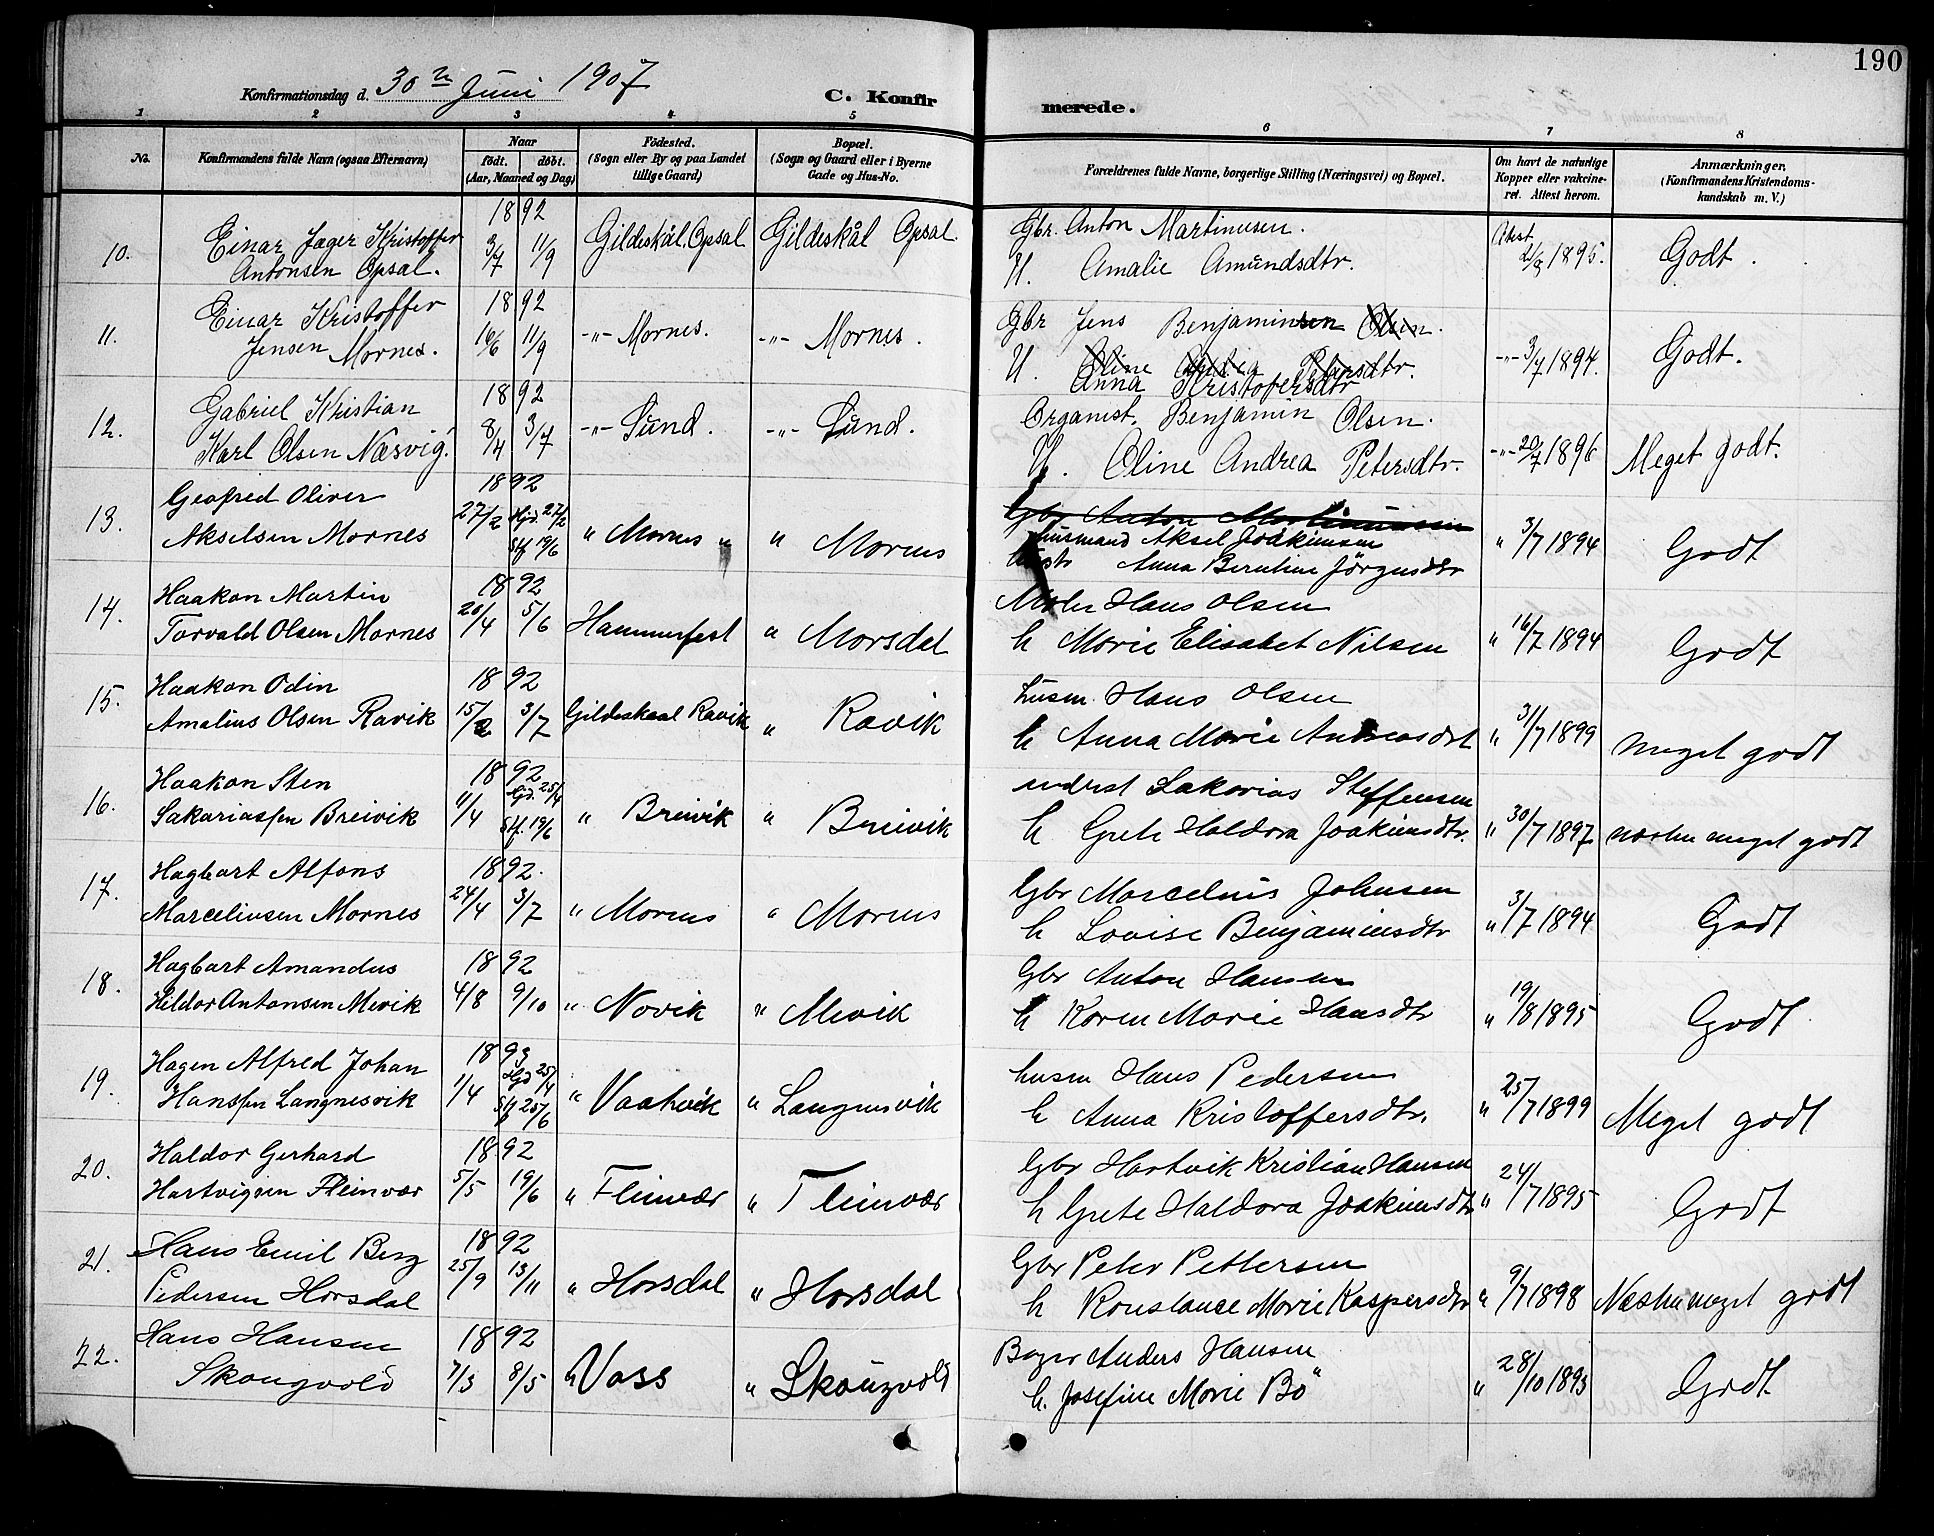 190
Konfirmationsdag d. 30te Juni 1907
C. Konfirmerede.
1 2 3 4 5 6 7 8
No.
Konfirmandens fulde Navn (ogsaa Efternavn)
Naar
født. døbt.
(Aar, Maaned og Dag)
Fødested.
(Sogn eller By og paa Landet
tillige Gaard)
Bopæl.
(Sogn og Gaard eller i Byerne
Gade og Hus-No.
Forældrenes fulde Navne, borgerlige Stilling (Næringsvei) og Bopæl.
Om havt de naturlige
Kopper eller vakcine-
ret. Attest herom.
Anmærkninger,
(Konfirmandens Kristendoms-
kundskab m. V.)
1892
10. Einar Jager Kristoffer 3/7 11/9 Gildeskål. Opsal Gildeskål Opsal. Gbr. Anton Martinusen. Attest
Antonsen Opsal. H. Amalie Amundsdtr. 2/8 1895. Godt.
1892
11. Einar Kristoffer 16/6 11/9 -"- Mornes. -"- Mornes. Gbr Jens Benjaminsen Olsen.
Jensen Mornes. H. Oline Andrea Petersdtr. -"- 3/7 1894. Godt.
Anna Kristofersdtr
1892
12. Gabriel Kristian 8/4 3/7 -"- Sund. -"- Sund. Organist, Benjamin Olsen.
Karl Olsen Næsvig. H. Oline Andrea Petersdtr. -"- 20/7 1896 Meget godt.
1892
13. Geofred Oliver 27/2 Hjd. 27/2 " Mornes " " Mornes Gbr Anton Martinussen
Akselsen Mornes Stf 19/6 Husmand Aksel Joakimsen " 3/7 1894 Godt
Anna Berntine Jörgensdtr
1892
14. Haakon Martin 20/4 5/6 Hammerfest " Morsdal Hans Olsen
Torvald Olsen Mornes h Marie Elisabet Nilsen " 16/7 1894 Godt
1892
15. Haakon Odin 15/2 3/7 Gildeskaal Ravik " Ravik husm. Hans Olsen
Amalius Olsen Ravik h Anna Marie Andreasdtr " 31/7 1899 meget godt
1892
16. Haakon Sten 11/4 Hjd. 25/4 " Breivik " Breivik inderst Sakarias Steffensen
Sakariassen Breivik Stf. 19/6 h Grete Haldora Joakimsdtr. " 30/7 1897 næsten meget godt
1892.
17. Hagbart Alfons 24/4 3/7 " Mornes " Mornes Gbr Marcelius Johnsen
Marceliusen Mornes h Lovise Benjaminsdtr " 3/7 1894 Godt
1892
18. Hagbart Amandus 4/8 9/10 " Novik " Mevik Gbr Anton Hansen
Hildor Antonsen Mevik h Karen Marie Hansdtr " 19/8 1895 Godt
1893
19. Hagen Alfred Johan 1/4 Hjd 25/4 " Vaatvik " Langnesvik husm Hans Pedersen
Hanssen Langnesvik Stf 25/6 h Anna Kristoffersdtr. " 25/7 1899 Meget godt
1892
20. Haldor Gerhard 5/5 19/6 " Fleinvær " Fleinvær Gbr Hartvik Kristian Hansen
Hartvigsen Fleinvær h Grete Haldora Joakimsdtr " 24/7 1895 Godt
1892
21. Hans Emil Berg 25/9 13/11 " Horsdal " Horsdal Gbr Peter Pettersen
Pedersen Horsdal h Konstanse Marie Kaspersdtr " 9/7 1898 Næsten meget godt
1892
22. Hans Hansen 7/3 8/5 " Voss " Skaugvold Anders Hansen
Skaugvold h. Josefine Marie Bö " 28/10 1893 Godt